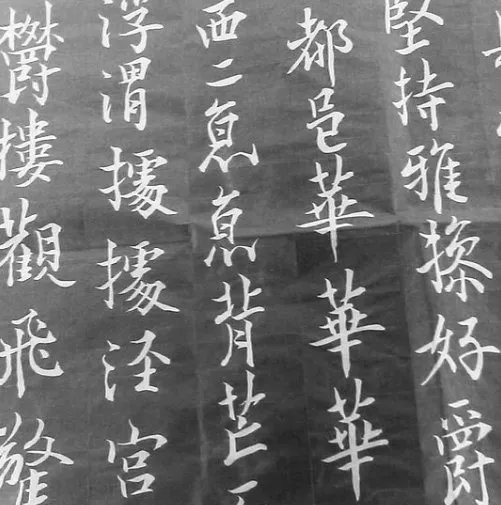 堅持雅操好爵
都邑華華華
西二京京背芒
浮渭據據涇宮
鬱樓觀飛驚